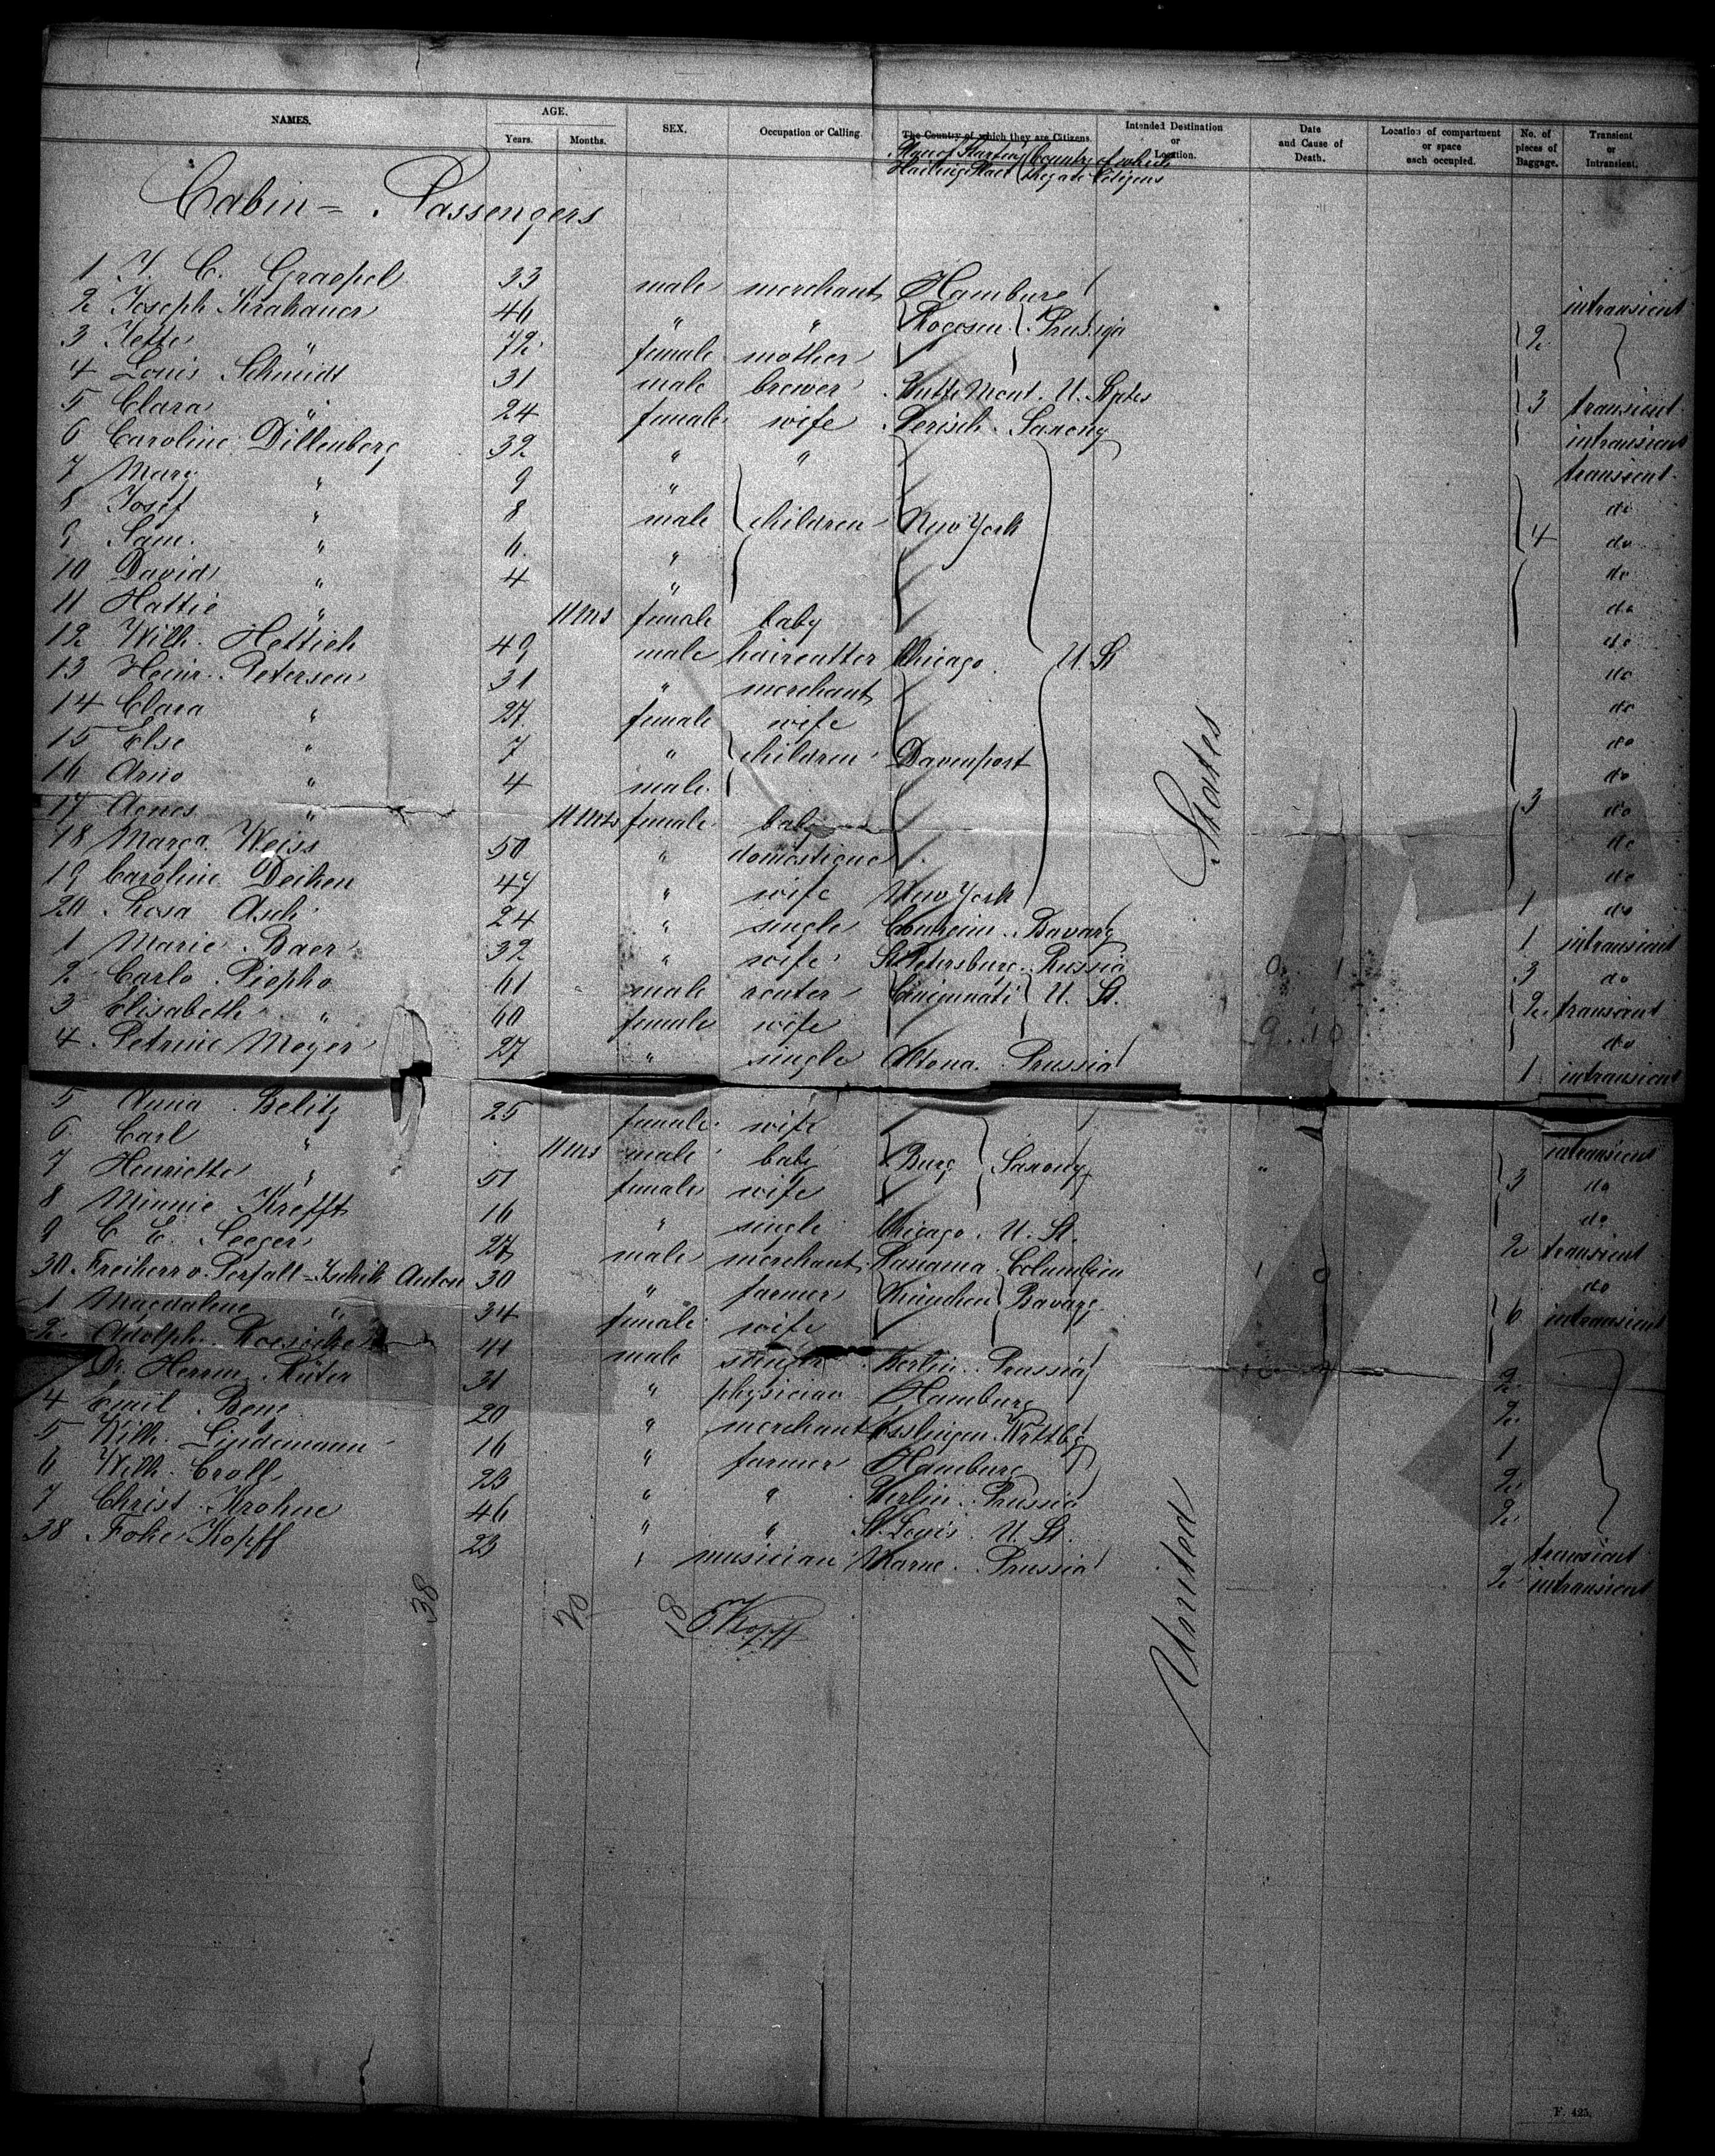 NAMES. AGE. Years. Months. SEX. Occupation or Calling. The Country of which they are Citizens. Intended Destination or Location. Date and Cause of Death. Location of compartment or space each occupied. No. of pieces of Baggage. Transient or Intransient.
Country of which they are Citizens
Cabin = Passengers
1 J. C. Graepel 33 male merchant Hamburg intransient
2 Joseph Krakauer 46 " " Rogosen Prussia 2
3 Jette " 72 female mother
4 Louis Schmidt 31 male brewer Butte Mont. U. States 3 transient
5 Clara " 24 female wife Saxony intransient
6 Caroline Dillenberg 32 " " transient
7 Mary " 9 " do
8 Josef " 8 male children New York 4 do
9 Sam. " 6 " do
10 David " 4 " do
11 Hattie " 11 Mts female baby do
12 Wilh. Hettich 49 male haircutter Chicago U. St do
13 Heinr. Petersen 31 " merchant do
14 Clara " 27 female wife do
15 Else " 7 " children Davenport do
16 Arno " 4 male 3 do
17 Agnes " 11 Mts female baby do
18 Marga. Weiss 50 " domestique do
19 Caroline Deiken 47 " wife New York 1 do
20 Rosa Asch 24 " single Bavary 1 intransient
1 Marie Baer 32 " wife St. Petersburg Russia 3 do
2 Carlo Piepho 61 male renter Cincinnati U. St. 2 transient
3 Elisabeth " 60 female wife do
4 Petrine Meyer 27 " single Altona Prussia 1 intransient
5 Anna Belitz 25 female wife intransient
6 Carl " 11 Mts male baby Burg Saxony 3 do
7 Henriette " 51 female wife do
8 Minnie Krefft 16 " single Chicago U. St. 2 transient
9 C. E. Seeger 27 male merchant Panama Columbien do
30 Freiherr v. Perfall Anton 30 " farmer München Bavary 6 intransient
1 Magdalene " 34 female wife
2 Adolph Roesicke 41 male singer Berlin Prussia 2
Dr. Herrm. Rüter 31 " physician Hamburg 2
4 Emil Benz 20 " merchant Esslingen Wrttbg 1
5 Wilh. Lindemann 16 " farmer Hamburg 2
6 Wilh. Croll 23 " " Berlin Prussia 2
7 Christ. Krohne 46 " " St. Louis U. St. transient
38 Foke Kopff 23 " musician Marne Prussia 2 intransient
United States
38 20 18 F Kopff
F. 425.